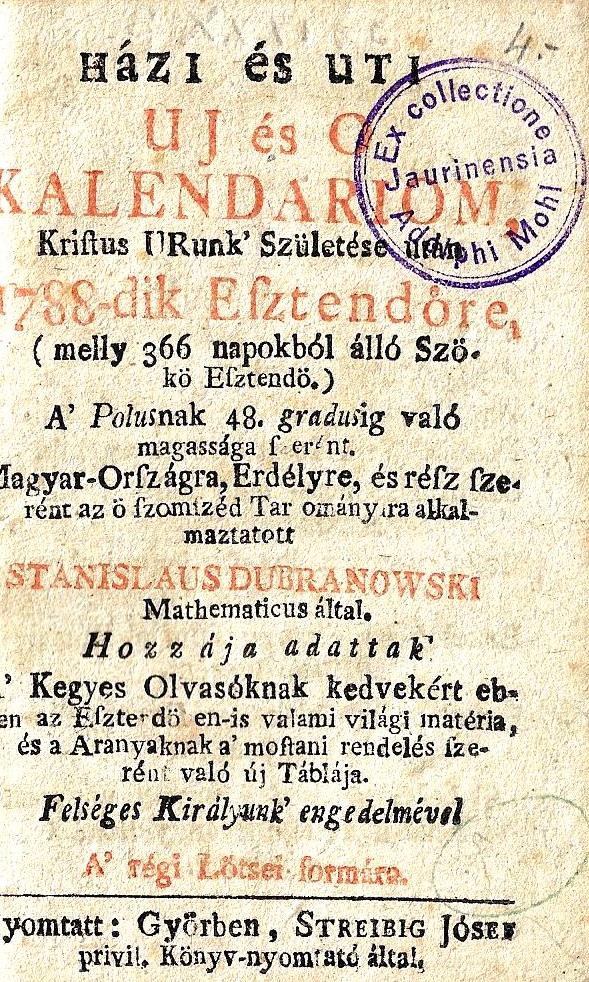 4.-
HÁZI és UTI
UJ és O
KALENDARIOM,
Kriſtus URunk' Születése után
1788-dik Eſztendőre,
( melly 366 napokból álló Szö-
kö Eſztendö.)
A' Polusnak 48. gradusig való
magassága ſzerént.
Magyar-Orſzágra, Erdélyre, és réſz ſze-
rént az ö ſzomſzéd Tartományira alkal-
maztatott
STANISLAUS DUBRANOWSKI
Mathematicus által.
Hozzája adattak
A' Kegyes Olvasóknak kedvekért eb-
en az Eſztendöben-is valami világi matéria,
és a Aranyaknak a' moſtani rendelés ſze-
rént való új Táblája.
Felséges Királyunk' engedelmével
A' régi Lötsei formára.
yomtatt: Győrben, STREIBIG JÓSEF
privil. Könyv-nyomtató által.
Ex collectione
Jaurinensia
Adolphi Mohl